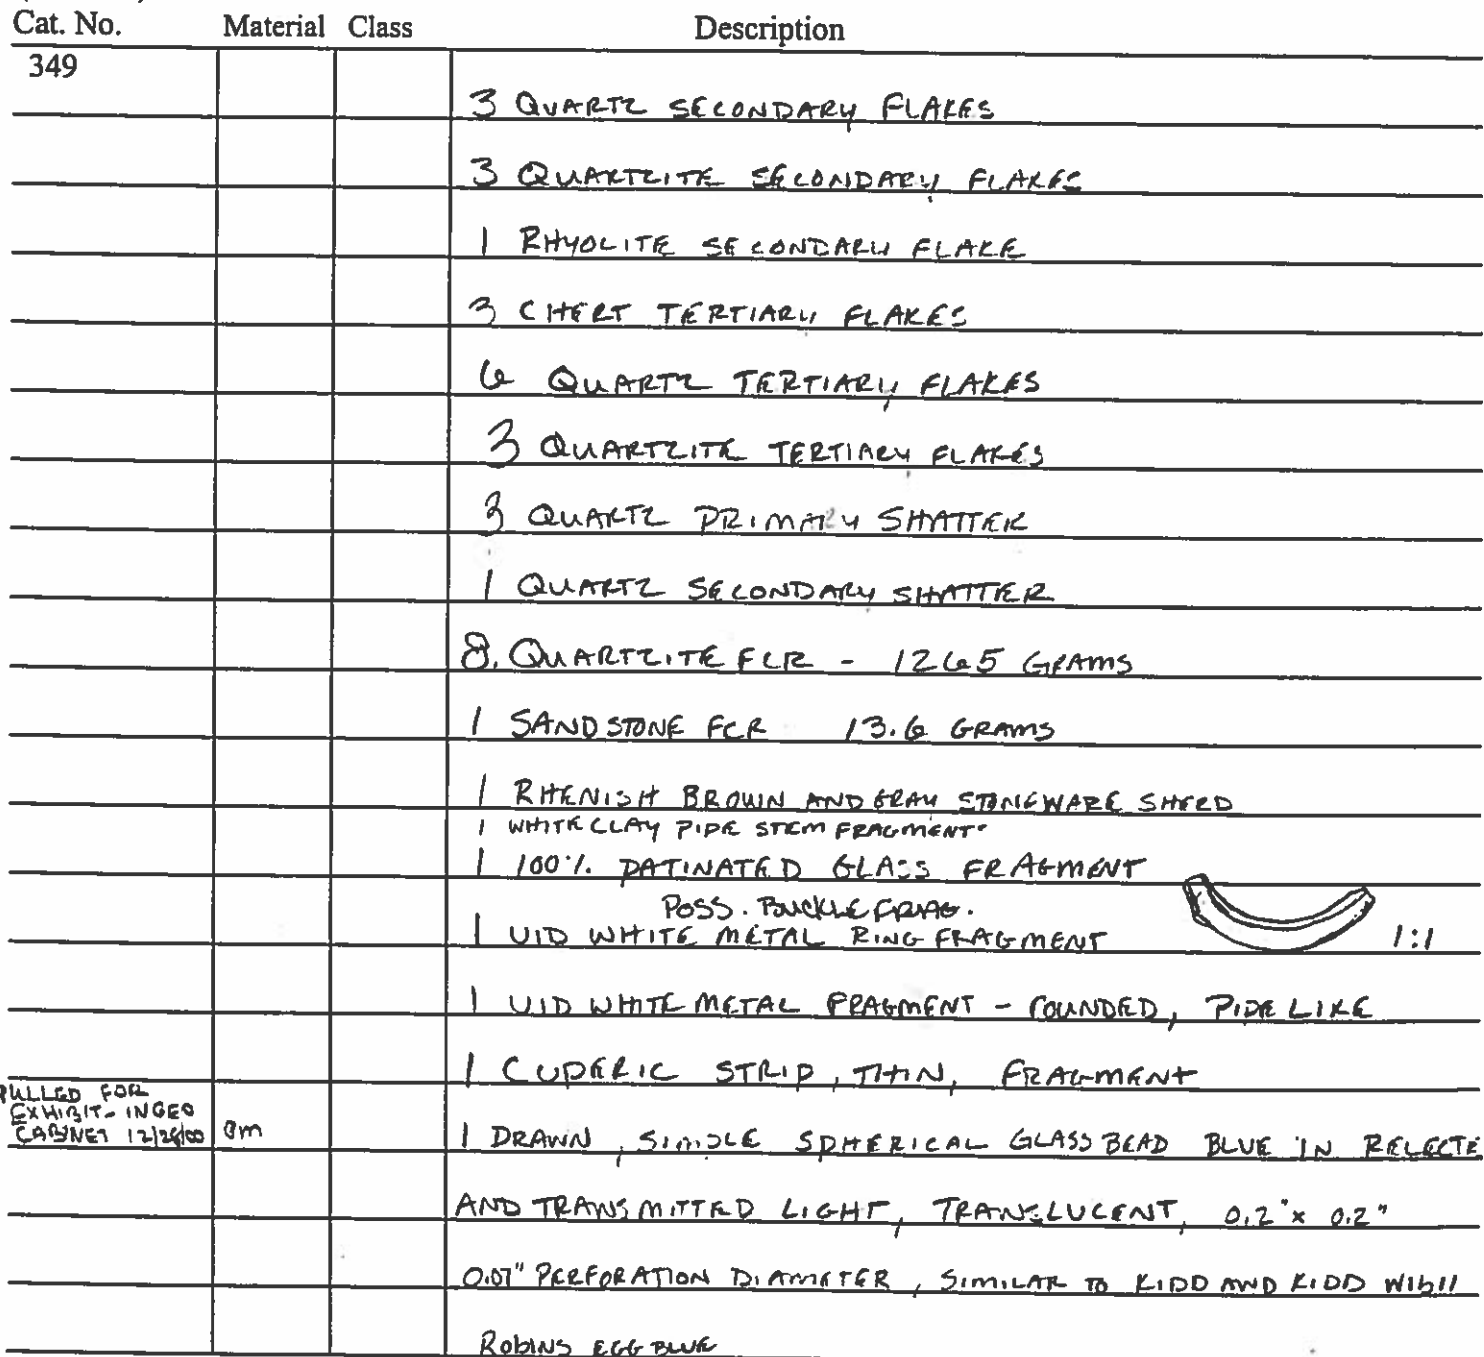 Cat. No. Material Class Description
349
3 QUARTZ SECONDARY FLAKES
3 QUARTZITE SECONDARY FLAKES
1 RHYOLITE SECONDARY FLAKE
3 CHERT TERTIARY FLAKES
6 QUARTZ TERTIARY FLAKES
3 QUARTZITE TERTIARY FLAKES
3 QUARTZ PRIMARY SHATTER
1 QUARTZ SECONDARY SHATTER
8. QUARTZITE FCR - 1265 GRAMS
1 SANDSTONE FCR 13.6 GRAMS
1 RHENISH BROWN AND GRAY STONEWARE SHERD
1 WHITE CLAY PIPE STEM FRAGMENT
1 100% PATINATED GLASS FRAGMENT
POSS. BUCKLE FRAG.
1 UID WHITE METAL RING FRAGMENT 1:1
1 UID WHITE METAL FRAGMENT - ROUNDED, PIPE LIKE
1 CUPERIC STRIP, THIN, FRAGMENT
PULLED FOR
EXHIBIT- IN GEO
CABINET 12/28/00
1 DRAWN, SIMPLE SPHERICAL GLASS BEAD BLUE IN RELECTE
AND TRANSMITTED LIGHT, TRANSLUCENT, 0.2" x 0.2"
0.07" PERFORATION DIAMETER, SIMILAR TO KIDD AND KIDD
ROBINS EGG BLUE